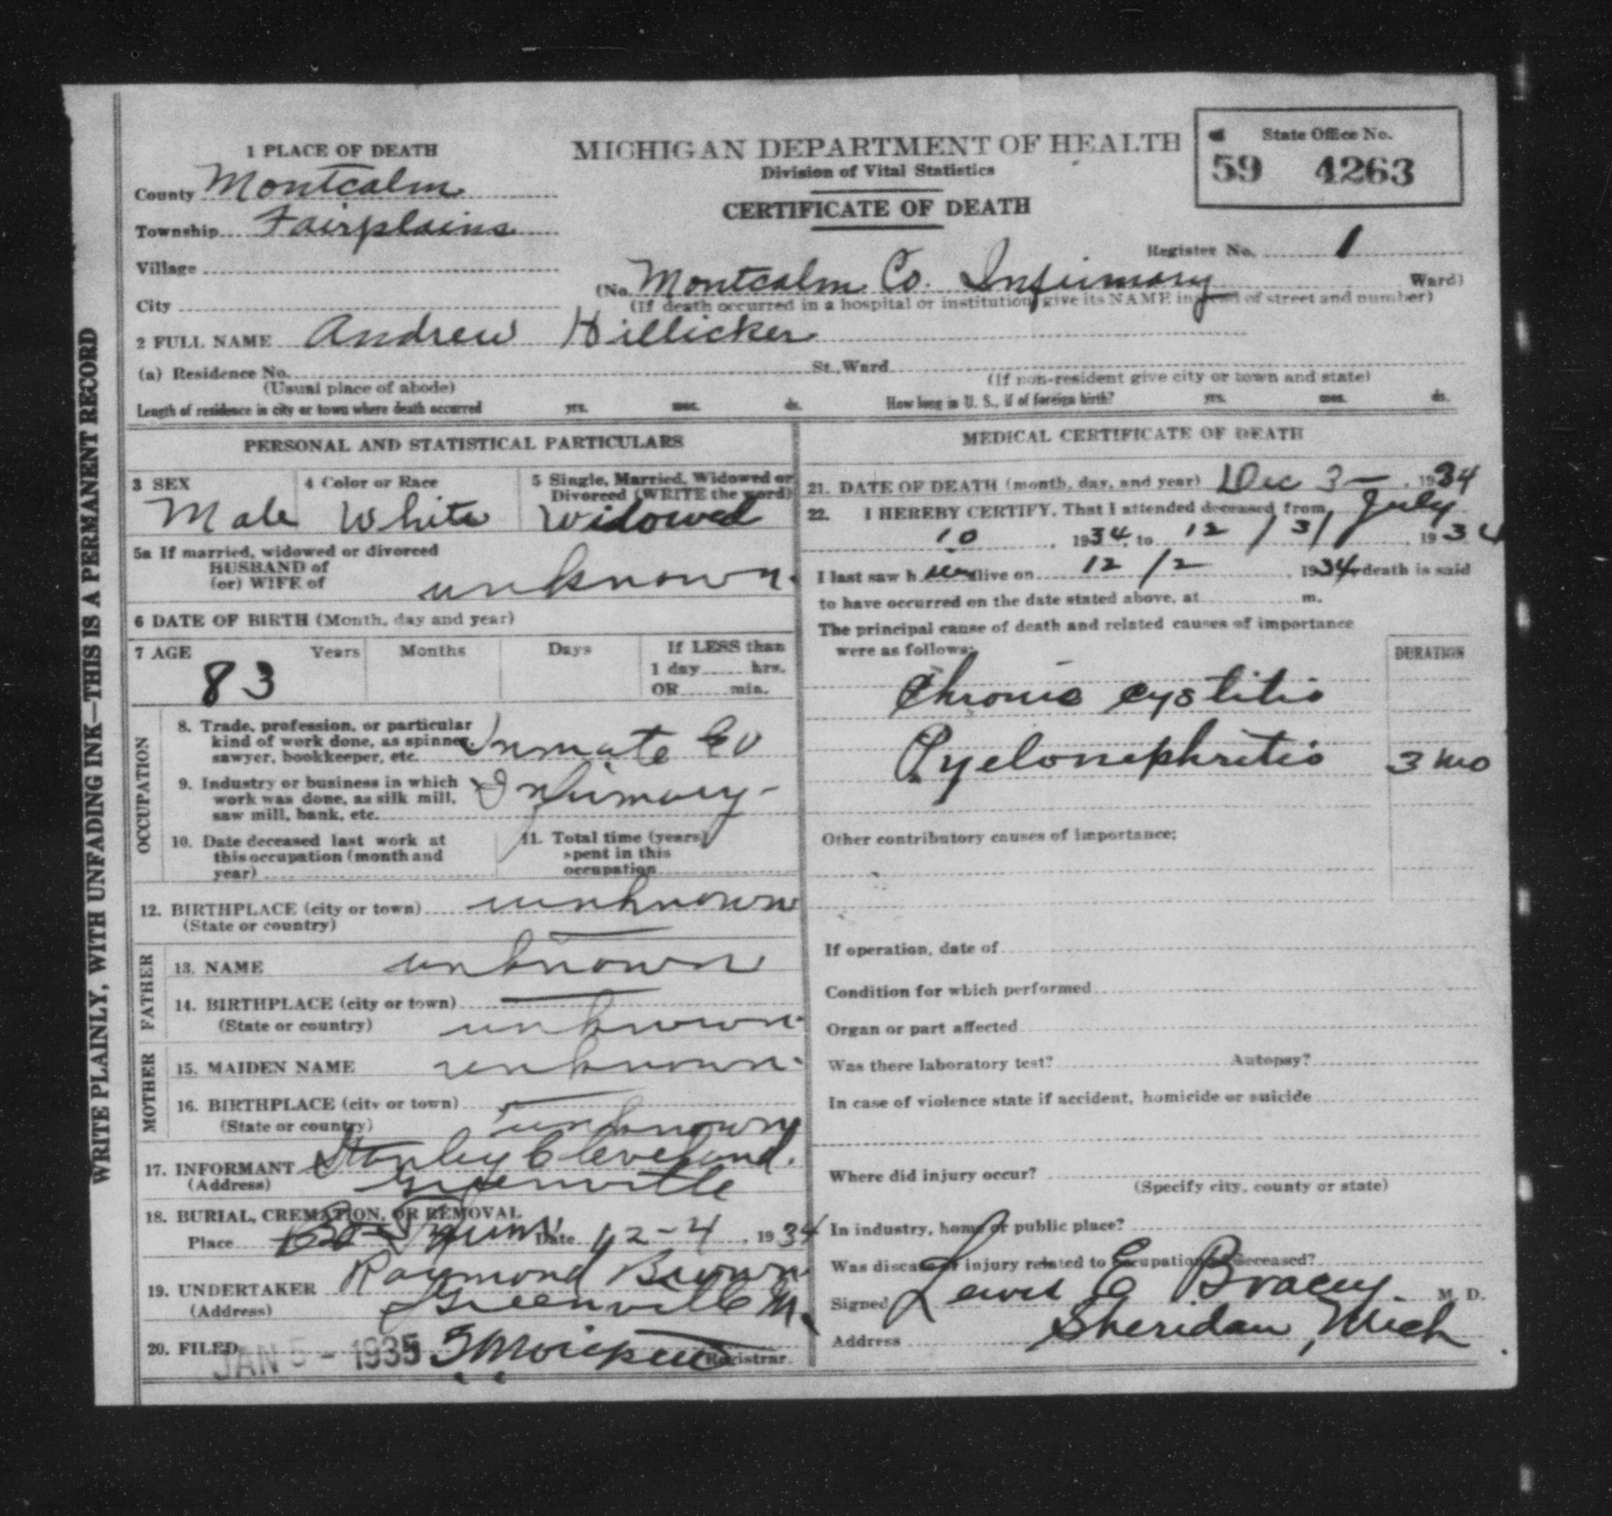 WRITE PLAINLY, WITH UNFADING INK—THIS IS A PERMANENT RECORD
1 PLACE OF DEATH
County Montcalm
Township Fairplains
Village
City
MICHIGAN DEPARTMENT OF HEALTH
Division of Vital Statistics
CERTIFICATE OF DEATH
State Office No.
59 4263
Register No. 1
(No. Montcalm Co. Infirmary Ward)
(If death occurred in a hospital or institution give its NAME instead of street and number)
2 FULL NAME Andrew Hillicker
(a) Residence No. St., Ward
(Usual place of abode) (If non-resident give city or town and state)
Length of residence in city or town where death occurred yrs. mos. ds. How long in U. S., if of foreign birth? yrs. mos. ds.
PERSONAL AND STATISTICAL PARTICULARS
3 SEX 4 Color or Race 5 Single, Married, Widowed or
Divorced (WRITE the word)
Male White Widowed
5a If married, widowed or divorced
HUSBAND of
(or) WIFE of unknown.
6 DATE OF BIRTH (Month, day and year)
7 AGE Years Months Days If LESS than
83 1 day hrs.
OR min.
OCCUPATION
8. Trade, profession, or particular
kind of work done, as spinner,
sawyer, bookkeeper, etc. Inmate Co
9. Industry or business in which
work was done, as silk mill,
saw mill, bank, etc. Infirmary-
10. Date deceased last work at
this occupation (month and
year)
11. Total time (years)
spent in this
occupation
12. BIRTHPLACE (city or town) unknown
(State or country)
FATHER
13. NAME unknown
14. BIRTHPLACE (city or town)
(State or country) unknown
MOTHER
15. MAIDEN NAME unknown.
16. BIRTHPLACE (city or town)
(State or country) unknown
17. INFORMANT Stanley Cleveland.
(Address) Greenville
18. BURIAL, CREMATION, OR REMOVAL
Place Date 12-4, 1934
19. UNDERTAKER Raymond Brown
(Address) Greenville M.
20. FILED JAN 5 - 1935 Registrar.
MEDICAL CERTIFICATE OF DEATH
21. DATE OF DEATH (month, day, and year) Dec 3—, 1934
22. I HEREBY CERTIFY, That I attended deceased from July
10, 1934, to 12/3/ 1934
I last saw h im alive on 12/2, 1934, death is said
to have occurred on the date stated above, at m.
The principal cause of death and related causes of importance
were as follows: DURATION
Chronic cystitis
Pyelonephritis 3 mo
Other contributory causes of importance:
If operation, date of
Condition for which performed
Organ or part affected
Was there laboratory test? Autopsy?
In case of violence state if accident, homicide or suicide
Where did injury occur?
(Specify city, county or state)
In industry, home or public place?
Was disease or injury related to occupation of deceased?
Signed Lewis E Bracey. M. D.
Address Sheridan, Mich